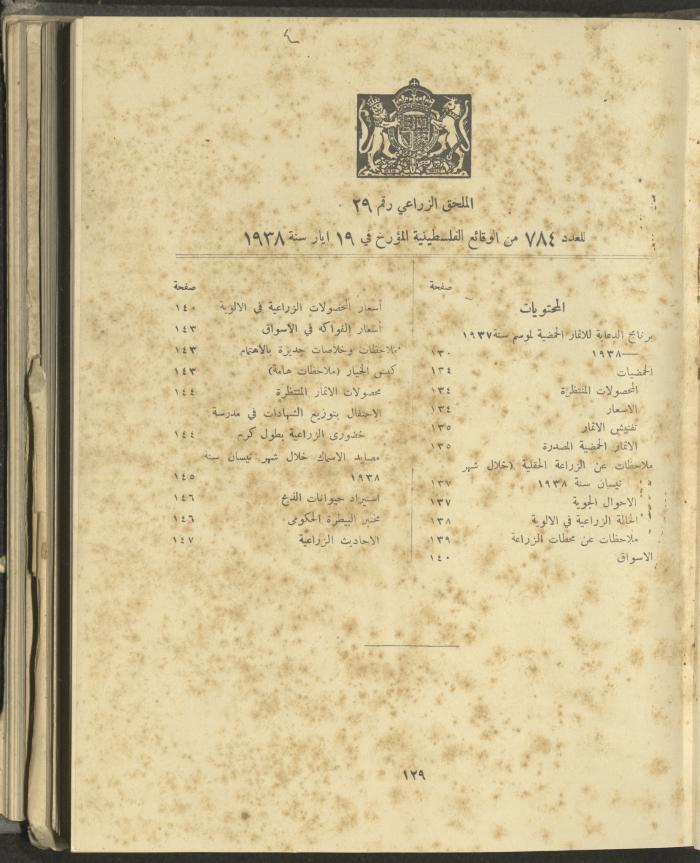 الملحق الزراعي رقم ٢٩
للعدد ٧٨٤ من الوقائع الفلسطينية المؤرخ في ١٩ ايار سنة ١٩٣٨
صفحة
المحتويات
برنامج الدعاية للاثمار الحمضية لموسم سنة ١٩٣٧
—١٩٣٨ ١٣٠
الحمضيات ١٣٤
المحصولات المنتظرة ١٣٤
الاسعار ١٣٤
تفتيش الاثمار ١٣٥
الاثمار الحمضية المصدرة ١٣٥
ملاحظات عن الزراعة الحقلية (خلال شهر
نيسان سنة ١٩٣٨ ١٣٧
الاحوال الجوية ١٣٧
الحالة الزراعية في الالوية ١٣٨
ملاحظات عن محطات الزراعة ١٣٩
الاسواق ١٤٠
صفحة
أسعار المحصولات الزراعية في الالوية ١٤٠
أسعار الفواكه في الاسواق ١٤٣
ملاحظات وخلاصات جديرة بالاهتمام ١٤٣
كبيس الخيار (ملاحظات هامة) ١٤٣
محصولات الاثمار المنتظرة ١٤٤
الاحتفال بتوزيع الشهادات في مدرسة
خضوري الزراعية بطول كرم ١٤٤
مصايد الاسماك خلال شهر نيسان سنة
١٩٣٨ ١٤٥
استيراد حيوانات الذبح ١٤٦
مختبر البيطرة الحكومى ١٤٦
الاحاديث الزراعية ١٤٧
١٢٩